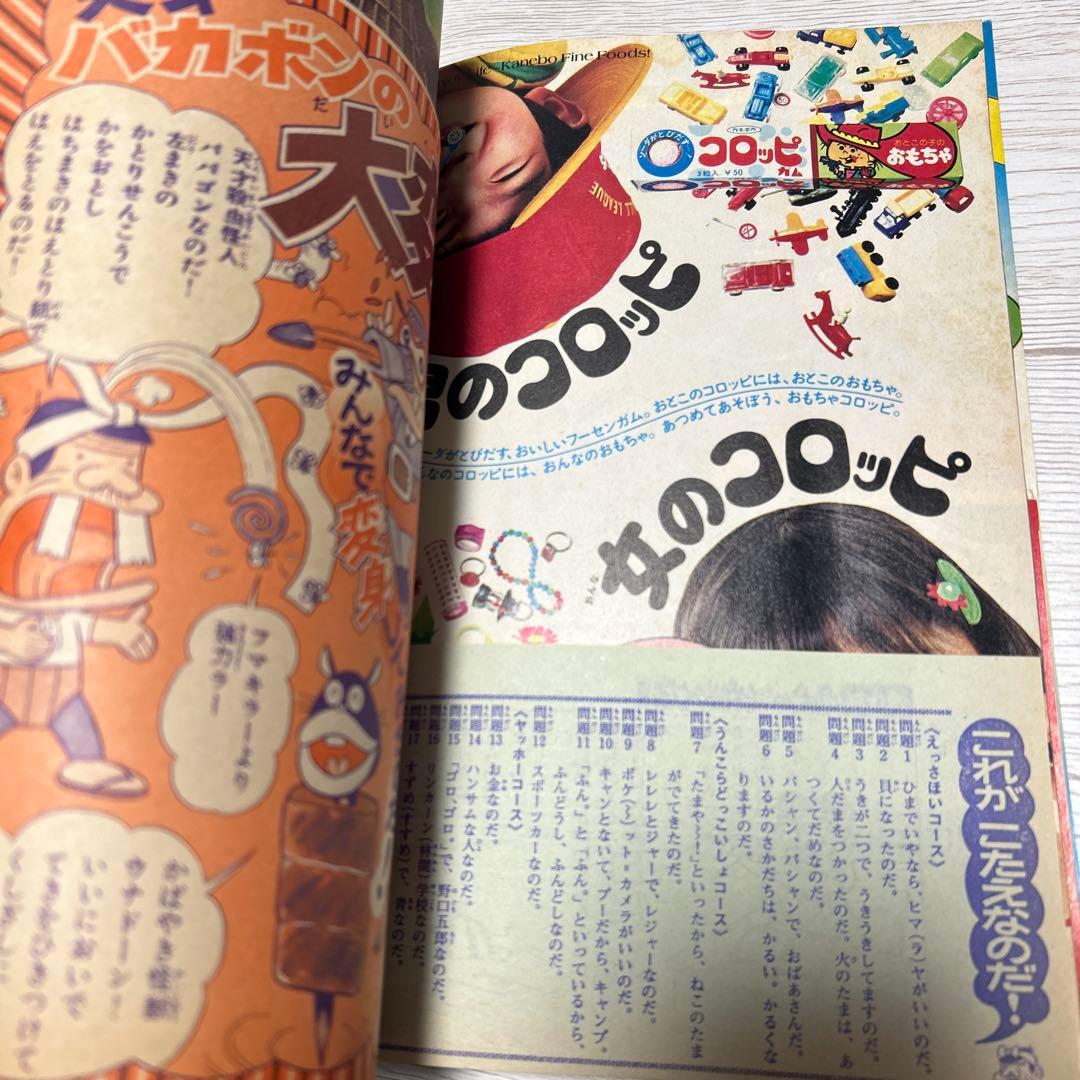 天才
バカボンの
だい
大
天才秘曲怪人
パパゴンなのだ!
左まきの
かとりせんこうで
かをおとし
はちまきのはえとり紙で
はえをとるのだ!
みんなで変身
フマキラーより
強力ラー
かばやき怪獣
ウナドーン!
いいにおいで
てきをひきつけて
Life. Kanebo Fine Foods!
ソーダがとびだす
カネボウ
コロッピ
ガム
3粒入 ¥50
コロッピ
おとこの子の
おもちゃ
LL LEAGUE
男のコロッピ
ーダがとびだす、おいしいフーセンガム。おとこのコロッピには、おとこのおもちゃ。
なのコロッピには、おんなのおもちゃ。あつめてあそぼう、おもちゃコロッピ。
おんな
女のコロッピ
これが こたえなのだ!
〈えっさほいコース〉
問題1 ひまでいやなら、ヒマ(ラ)ヤがいいのだ。
問題2 貝になったのだ。
問題3 うきが二つで、うきうきしてますのだ。
問題4 人だまをつかったのだ。火のたまは、あ
つくてだめなのだ。
問題5 バシャン、バシャンで、おばあさんだ。
問題6 いるかのさかだちは、かるい。かるくな
りますのだ。
〈うんこらどっこいしょコース〉
問題7 「たまや〜!」といったから、ねこのたま
がでてきたのだ。
問題8 レレレとジャーで、レジャーなのだ。
問題9 ポケ(〜)ット=カメラがいいのだ。
問題10 キャンとないて、プーだから、キャンプ。
問題11 「ふん。」と「ふん。」といっているから、
ふんどうし、ふんどしなのだ。
問題12 スポーツカーなのだ。
〈ヤッホーコース〉
問題13 お金なのだ。
問題14 ハンサムな人なのだ。
問題15 「ゴロ、ゴロ。」で、野口五郎なのだ。
問題16 リンカーン(林間)学校なのだ。
問題17 すずめ(すすめ)で、青なのだ。